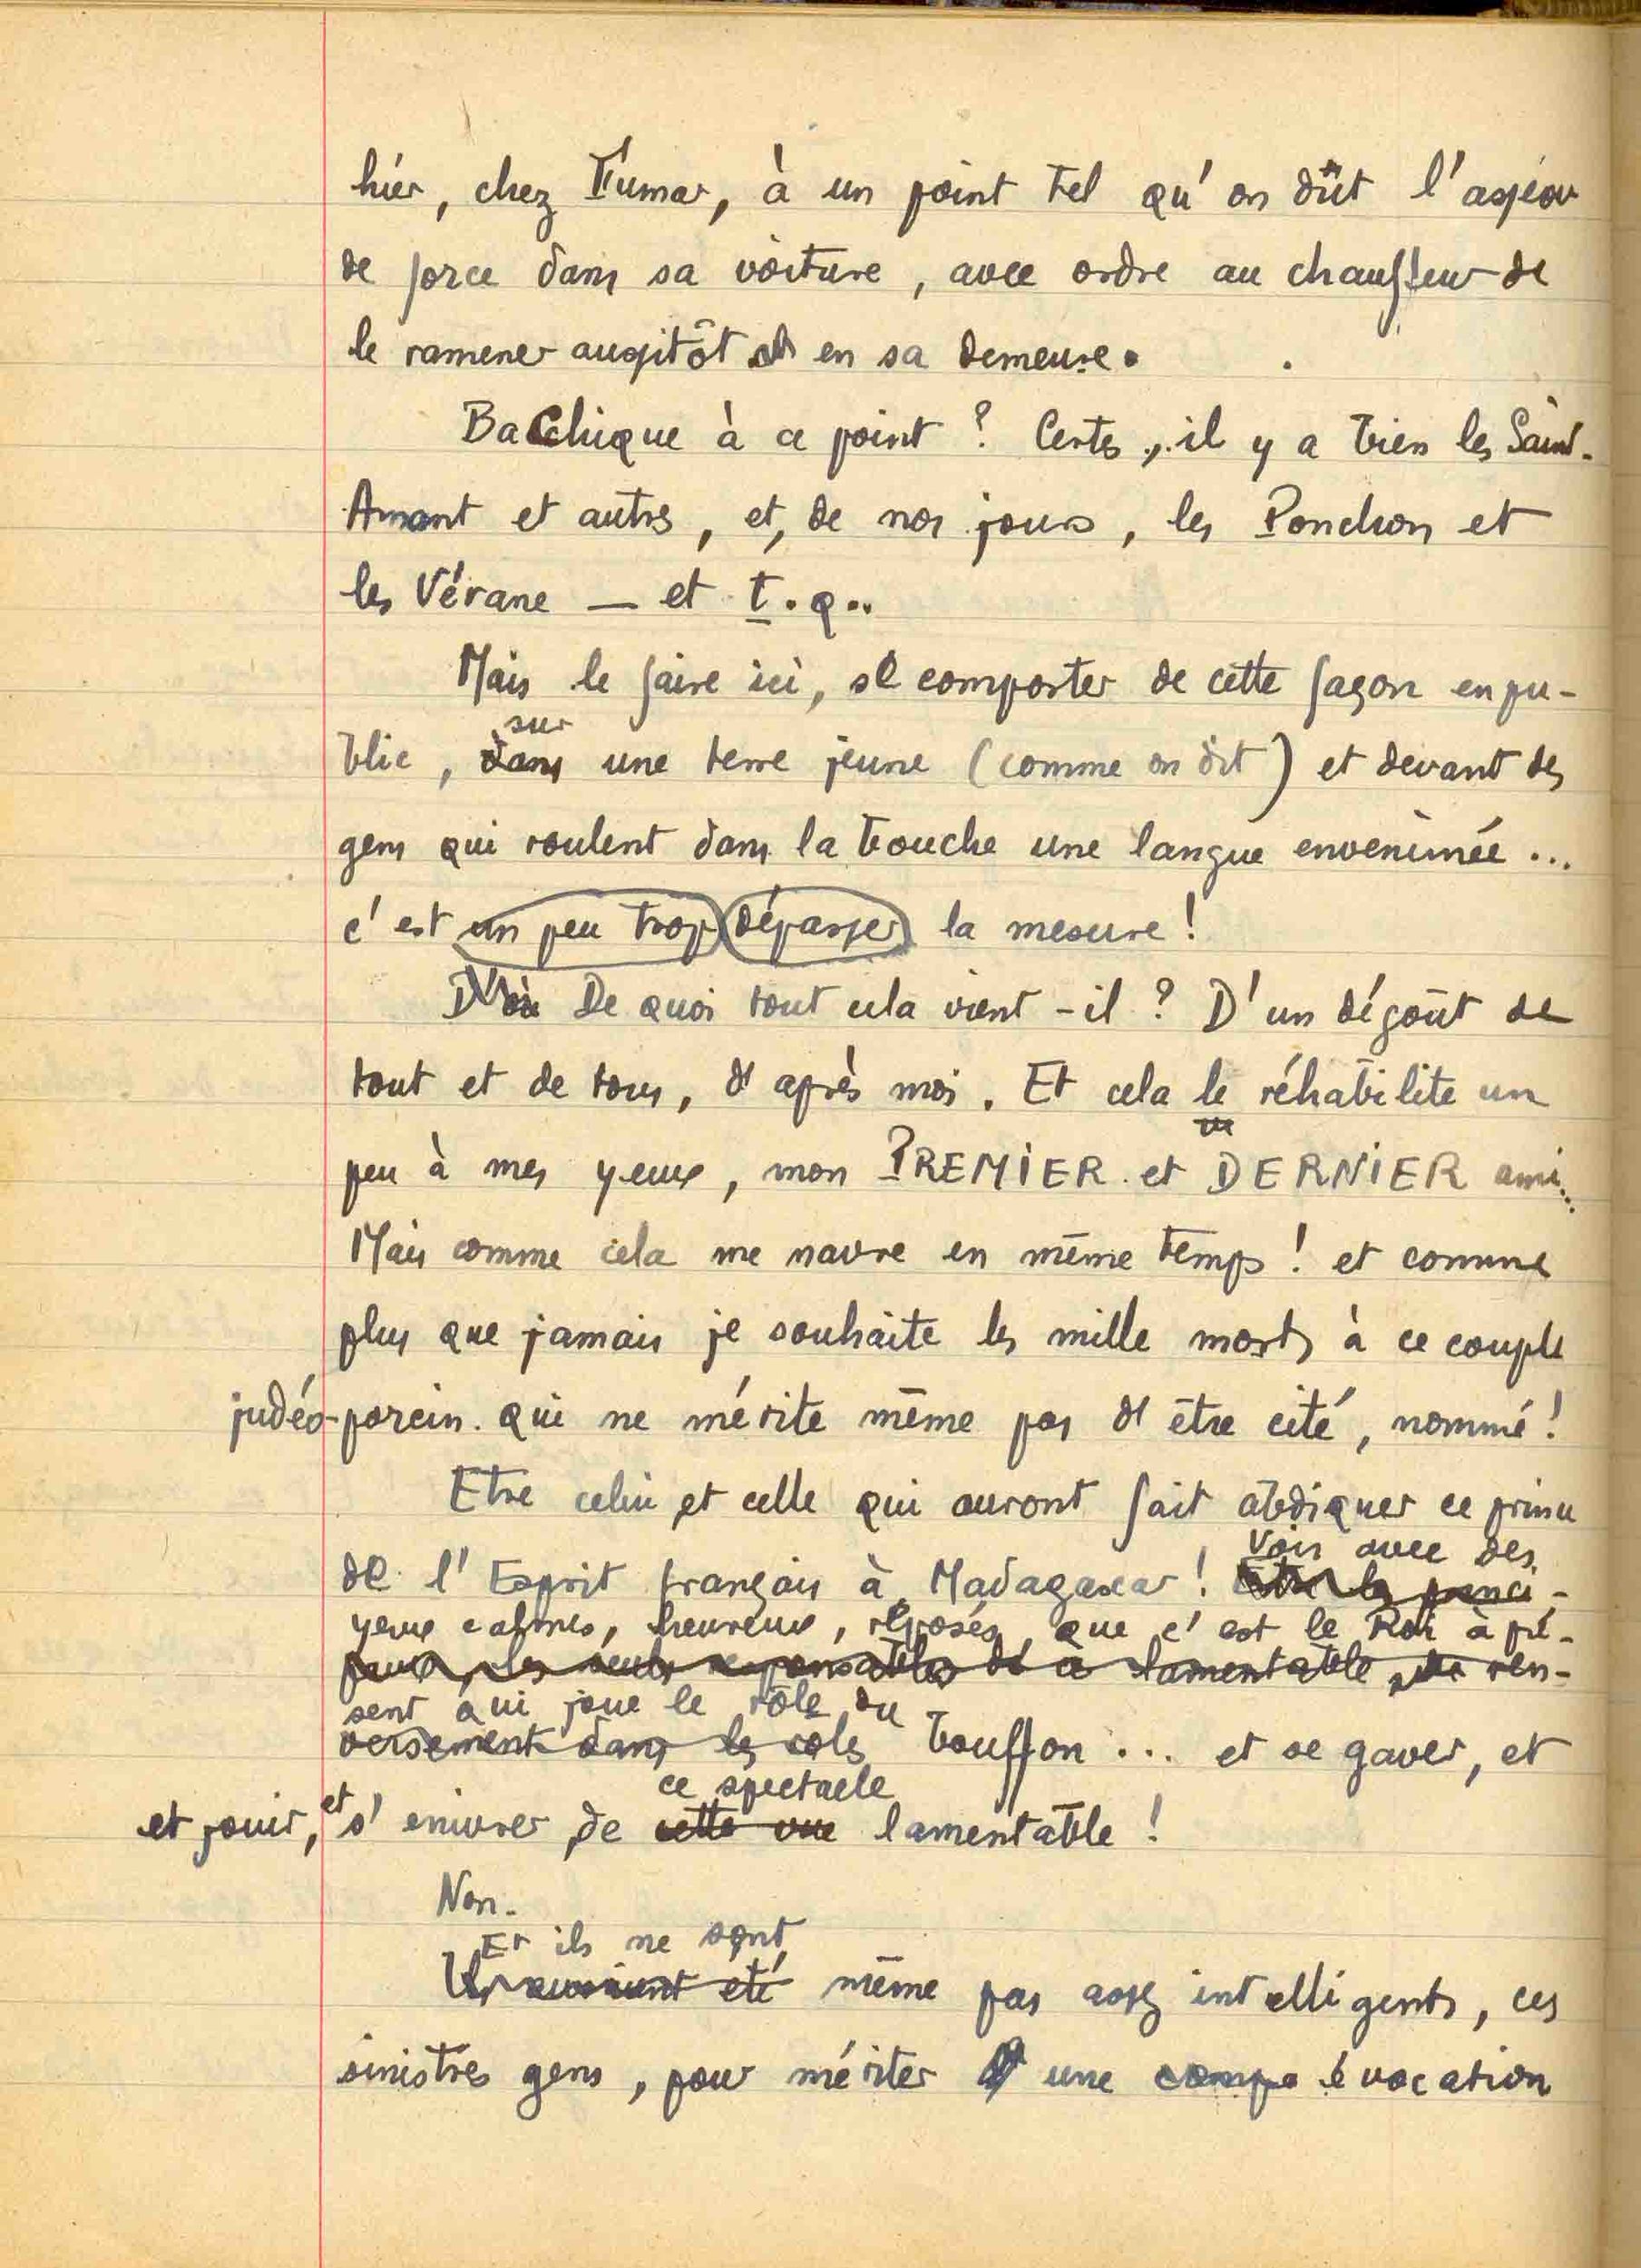 hier, chez Fumar, à un point tel qu'on dût l'asseoir
de force dans sa voiture, avec ordre au chauffeur de
le ramener aussitôt en sa demeure.
Bachique à ce point ? Certes, il y a bien les Saint-
Amant et autres, et, de nos jours, les Ponchon et
les Vérane — et t. q..
Mais le faire ici, se comporter de cette façon en pu-
sur
blic, dans une terre jeune (comme on dit) et devant des
gens qui roulent dans la bouche une langue envenimée ...
c'est un peu trop dépasser la mesure !
D'où De quoi tout cela vient-il ? D'un dégoût de
tout et de tous, d'après moi. Et cela le réhabilite un
peu à mes yeux, mon PREMIER et DERNIER ami...
Mais comme cela me navre en même temps ! et comme
plus que jamais je souhaite les mille morts à ce couple
judéo-porcin qui ne mérite même pas d'être cité, nommé !
Etre celui et celle qui auront fait abdiquer ce prince
Voir avec des
de l'Esprit français à Madagascar ! Etre les princi-
yeux calmes, heureux, reposés, que c'est le Roi à pré-
paux, les seuls responsables de ce lamentable ren-
sent qui joue le rôle du
versement dans les rôles bouffon ... et se gaver, et
ce spectacle
et jouir, et s'enivrer de cette vue lamentable !
Non.
Et ils ne sont
Ils auraient été même pas assez intelligents, ces
sinistres gens, pour mériter une compa évocation